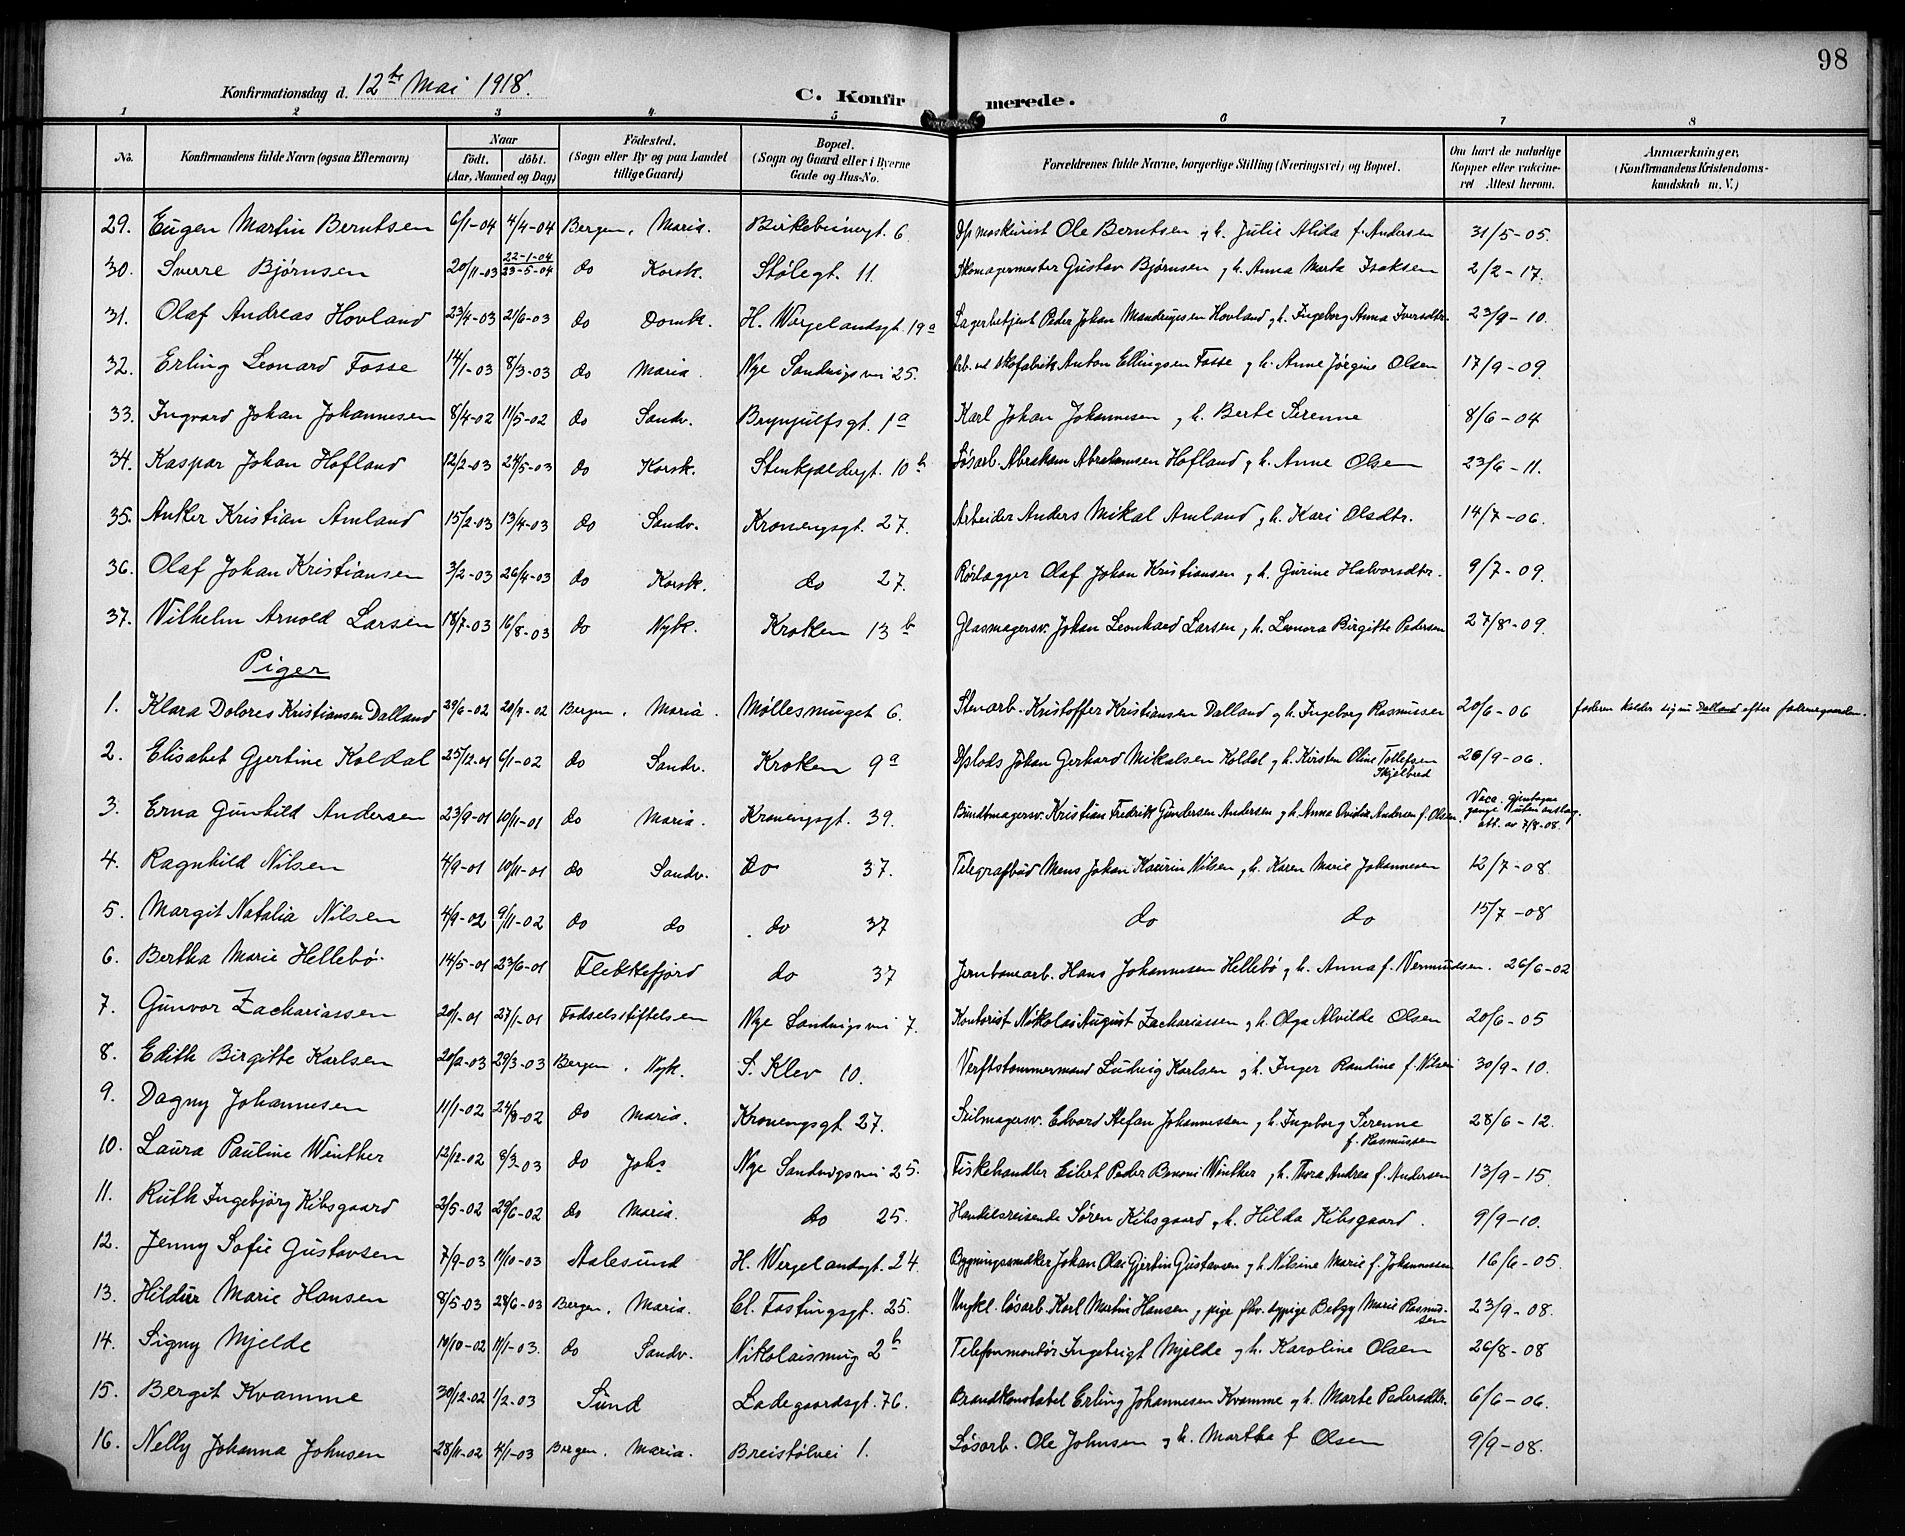 98
Konfirmationsdag d. 12te Mai 1918.
C. Konfirmerede.
1 2 3 4 5 6 7 8
No. Konfirmandens fulde Navn (ogsaa Efternavn) Naar födt. döbt. (Aar, Maaned og Dag) Födested. (Sogn eller By og paa Landet tillige Gaard) Bopæl. (Sogn og Gaard eller i Byerne Gade og Hus-No. Forældrenes fulde Navne, borgerlige Stilling (Næringsvei) og Bopæl. Om havt de naturlige Kopper eller vakcineret Attest herom. Anmærkninger, (Konfirmandens Kristendomskundskab m. V.)
29. Eugen Martin Berntsen 6/1-04 4/4-04 Bergen, Maria. Birkebeinergt. 6. D/p maskinist Ole Berntsen og h. Julie Alida f. Andersen 31/5-05.
30. Sverre Bjørnsen 20/11-03 22-1-04 23-5-04 do Korsk. Stølegt. 11. Skomagermester Gustav Bjørnsen og h. Anna Marta Isaksen 2/2-17.
31. Olaf Andreas Hovland 23/4-03 21/6-03 do Domk. H. Wergelandsgt. 19a Lagerbetjent Peder Johan Mandrupsen Hovland og h. Ingeborg Anna Iversdtr. 23/9-10.
32. Erling Leonard Fosse 14/1-03 8/3-03 do Maria. Nye Sandvigsvei 25. Arb. ved skofabrik Anton Ellingsen Fosse og h. Anne Jørgine Olsen 17/9-09.
33. Ingvard Johan Johannesen 8/4-02 11/5-02 do Sandv. Brynjulfsgt. 1a Karl Johan Johannesen og h. Berte Serenne 8/6-04
34. Kaspar Johan Hofland 12/2-03 24/5-03 do Korsk. Stenkjeldergt. 10b Løsarb. Abraham Abrahamsen Hofland og h. Anne Olsen 23/6-11.
35. Anker Kristian Amland 15/2-03 13/4-03 do Sandv. Kronengsgt. 27. Arbeider Anders Mikal Amland og h. Kari Olsdtr. 14/7-06.
36. Olaf Johan Kristiansen 3/2-03 26/4-03 do Korsk. do 27. Rørlægger Olaf Johan Kristiansen og h. Gurine Halvorsdtr. 9/7-09.
37. Vilhelm Arnold Larsen 18/7-03 16/8-03 do Nyk. Kroken 13b Glasmagersv. Johan Leonhard Larsen og h. Leonora Birgitte Pedersen 27/8-09.
Piger
1. Klara Dolores Kristiansen Dalland 29/6-02 20/7-02 Bergen, Maria. Møllesmuget 6. Stenarb. Kristoffer Kristiansen Dalland og h. Ingeborg Rasmussen 20/6-06 faderen kalder sig nu Dalland efter fædrenegaarden.
2. Elisabet Gjertine Koldal 25/12-01 6/1-02 do Sandv. Kroken 9a D/plods Johan Gerhard Mikalsen Koldal og h. Kirsten Oline Tollefsen Skjelbred 26/9-06.
3. Erna Gunhild Andersen 23/9-01 10/11-01 do Maria. Kronengsgt. 39. Buntmagersv. Kristian Fredrik Gundersen Andersen og h. Anna Ovidia Andersen f. Olsen. Vacc. gjentagne gange uten anslag. att. av 7/8-08.
4. Ragnhild Nilsen 4/9-01 10/11-01 do Sandv. do 37. Telegrafbud Mons Johan Kaurin Nilsen og h. Karen Marie Johannesen 12/7-08.
5. Margit Natalia Nilsen 4/9-02 9/11-02 do do do 37 do do 15/7-08
6. Bertha Marie Hellebø. 14/5-01 23/6-01 Flekkefjord do 37 Jernbanearb. Hans Johannesen Hellebø og h. Anna f. Vermundsen. 26/6-02
7. Gunvor Zachariassen 20/1-01 27/1-01 Fødselsstiftelsen Nye Sandvigsvei 7. Kontorist Nikolai August Zachariassen og h. Olga Alvilde Olsen 20/6-05
8. Edith Birgitte Karlsen 20/2-03 29/3-03 Bergen, Nyk. S. Klev 10. Verftstømmermand Ludvig Karlsen og h. Inger Randine f. Nilsen 30/9-10.
9. Dagny Johannesen 11/1-02 24/8-02 do Maria. Kronengsgt 27. Seilmagersv. Edvard Stefan Johannessen og h. Ingeborg Serenne f. Rasmussen 28/6-12.
10. Laura Pauline Winther 12/12-02 8/3-03 do Johs Nye Sandvigsvei 25. Fiskehandler Eilert Peder Benoni Winther og h. Thora Andrea f. Andersen 13/9-15.
11. Ruth Ingebjørg Kibsgaard 2/5-02 29/6-02 do Maria. do 25. Handelsreisende Søren Kibsgaard og h. Hilda Kibsgaard. 9/9-10.
12. Jenny Sofie Gustavsen 7/9-03 11/10-03 Aalesund H. Wergelandsgt. 24. Bygningssnedker Johan Olai Gjertin Gustavsen og h. Nilsine Marie f. Johannessen 16/6-05.
13. Hildur Marie Hansen 8/5-03 28/6-03 Bergen, Maria. Cl. Fastingsgt. 25. Ungkl. løsarb. Karl Martin Hansen og pige fhv. sypige Betzy Marie Rasmussen 23/9-08.
14. Signy Mjelde 10/10-02 11/1-03. do Sandv. Nikolaismug 2b Telefonmontør Ingebrigt Mjelde og h. Karoline Olsen 26/8-08
15. Bergit Kvamme 30/12-02 1/2-03 Sund Ladegaardsgt. 76. Brandkonstabel Erling Johannesen Kvamme og h. Marta Pedersdtr. 6/6-06.
16. Nelly Johanna Johnsen 28/11-02 4/1-03 Bergen, Maria. Breistølvei 1. Løsarb. Ole Johnsen og h. Martha f Olsen 9/9-08.